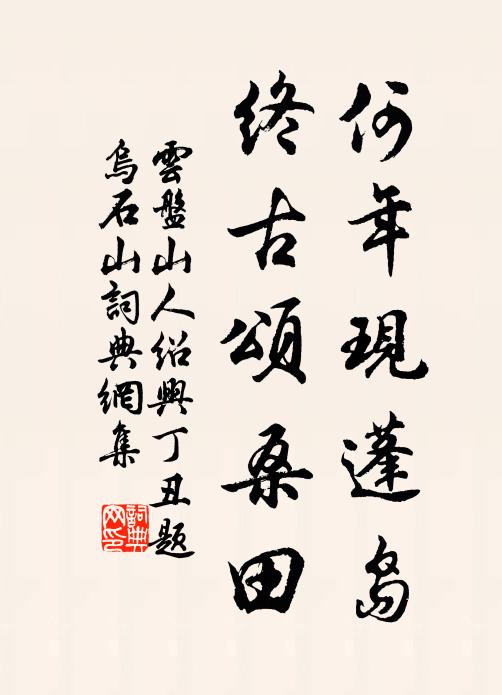 何年現蓬島
終古頌桑田
雲盤山人紹興丁丑題
烏石山詞典網集
詞典网印